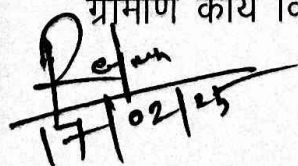 ग्रामीण कार्य वि
17/02/25